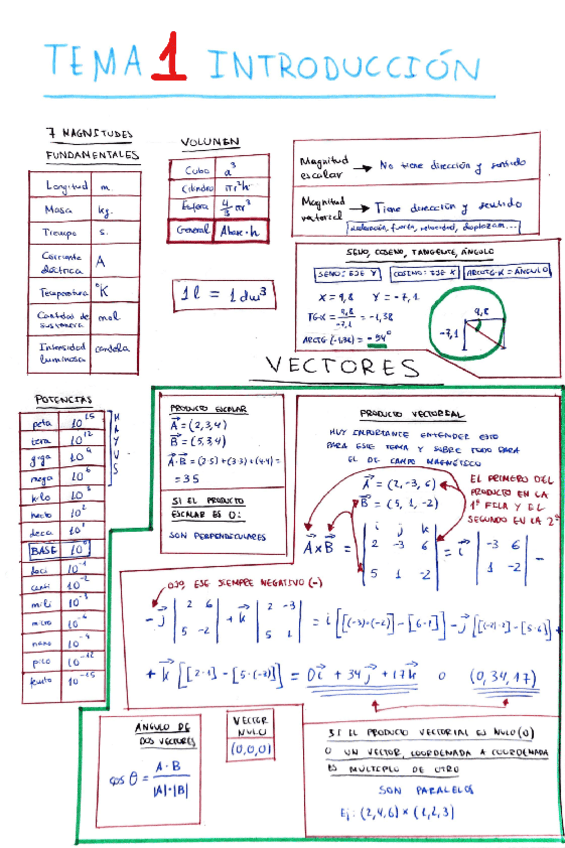 TEMA 1 INTRODUCCIÓN
7 MAGNITUDES
FUNDAMENTALES
Longitud m.
Masa kg.
Tiempo s.
Corriente
eléctrica A
Temperatura °K
Cantidad de
sustancia mol
Intensidad
luminosa candela
VOLUMEN
Cubo a³
Cilindro πr²h
Esfera 4/3 πr³
General Abase·h
1l = 1dm³
Magnitud
escalar → No tiene dirección y sentido
Magnitud
vectorial → Tiene dirección y sentido
fuerza, velocidad, desplazam...
SENO, COSENO, TANGENTE, ÁNGULO
SENO: EJE Y COSENO: EJE X ARCTG·K = ÁNGULO
X = 9,8 Y = -7,1
TG·X = 9,8/-7,1 = -1,38
= -54°
9,8
-7,1
VECTORES
POTENCIAS
peta 10¹⁵
tera 10¹²
giga 10⁹
mega 10⁶
kilo 10³
hecto 10²
deca 10¹
BASE 10⁰
deci 10⁻¹
centi 10⁻²
mili 10⁻³
micro 10⁻⁶
nano 10⁻⁹
pico 10⁻¹²
10⁻¹⁵
MAYUS
PRODUCTO ESCALAR
A = (2,3,4)
B = (5,3,4)
A·B = (2·5)+(3·3)+(4·4)=
= 35
SI EL PRODUCTO
ESCALAR ES 0:
SON PERPENDICULARES
PRODUCTO VECTORIAL
MUY IMPORTANTE ENTENDER ESTO
PARA ESTE TEMA Y SOBRE TODO PARA
EL DE CAMPO MAGNÉTICO
A = (2,-3,6)
B = (5,1,-2)
EL PRIMERO DEL
PRODUCTO EN LA
1ª FILA Y EL
SEGUNDO EN LA 2ª
i j k
A×B = 2 -3 6 = i -3 6 -
5 1 -2 1 -2
OJO, ESE SIEMPRE NEGATIVO (-)
- j 2 6 + k 2 -3 = i [[(-3)·(-2)]-[6·1]] - j [[2·(-2)]-[5·6]] +
5 -2 5 1
+ k [[2·1]-[5·(-3)]] = 0i + 34j + 17k o (0,34,17)
ÁNGULO DE
DOS VECTORES
cos θ = A·B / |A|·|B|
VECTOR
NULO
(0,0,0)
SI EL PRODUCTO VECTORIAL ES NULO (0)
O UN VECTOR, COORDENADA A COORDENADA
ES MÚLTIPLO DE OTRO
SON PARALELOS
Ej: (2,4,6) × (1,2,3)